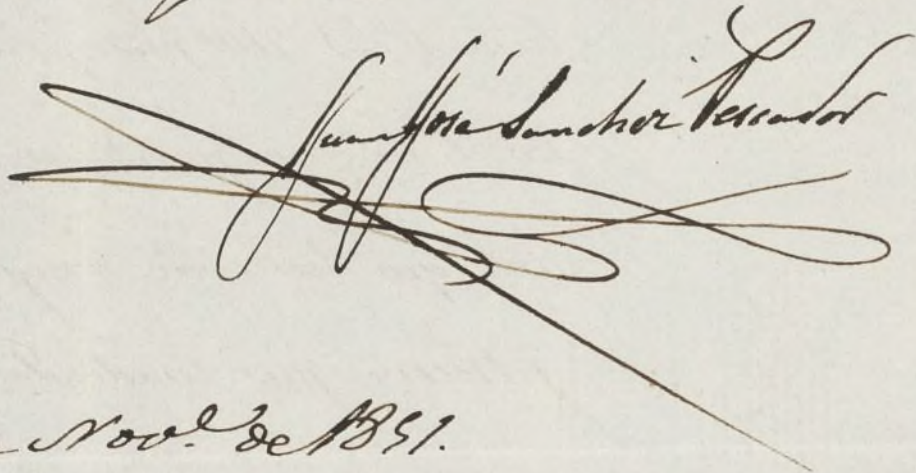 Juan José Sanchez Pescador
Nov.e de 1851.